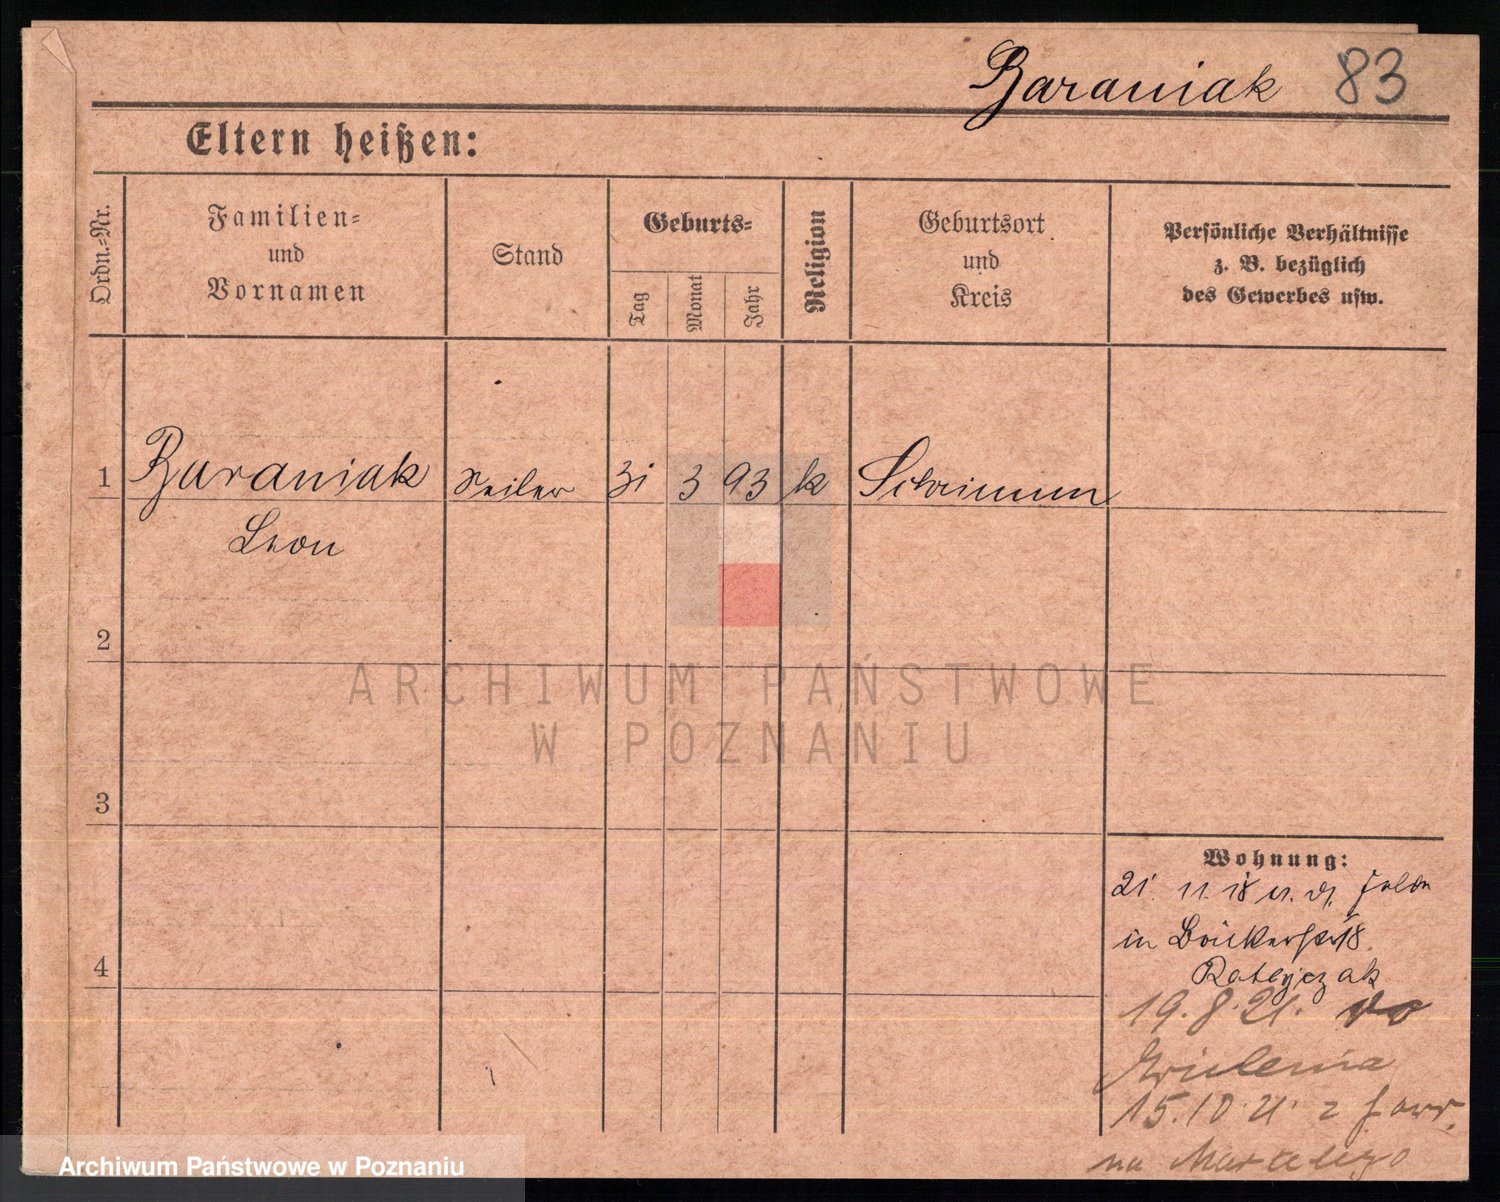 Baraniak 83
Eltern heißen:
Ordn.-Nr.
Familien-
und
Vornamen
Stand
Geburts-
Tag
Monat
Jahr
Religion
Geburtsort
und
Kreis
Persönliche Verhältnisse
z. B. bezüglich
des Gewerbes usw.
1 Baraniak Seiler 31 3 93 k Schrimm
Leon
2
3
4
Wohnung:
21. 11. 18
in 18
Ratajczak
19.8.21. do
15.10.21. z
na
ARCHIWUM PAŃSTWOWE
W POZNANIU
Archiwum Państwowe w Poznaniu